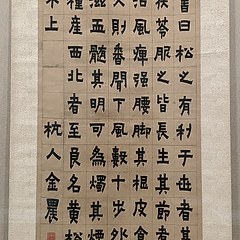 曰松之有利于世者甚
茯苓服之皆長生其節
治風痺强腰脚其根皮食
久則香聞下風數十步外
滋五髓其明可為燭其煙
種產西北者至良名黃松
木上
杭人金農